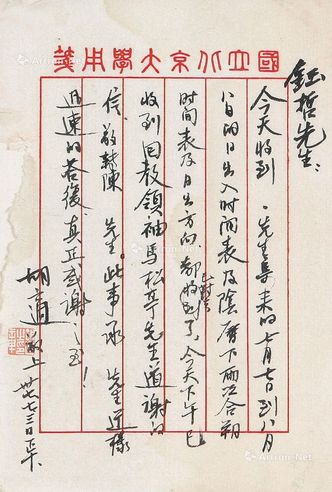 國立北京大學用箋
鈺哲先生：
今天收到　先生寄來的七月七日到八月
八日的日出入时间表及陰曆下兩次合朔
时间表及日出方向，都收到了。今天下午已
收到回教領袖馬松亭先生道謝的
信，敬轉陳　先生。此事承　先生這樣
迅速的答復，真正感謝之至！
胡適敬上　卅七，七，三日下午